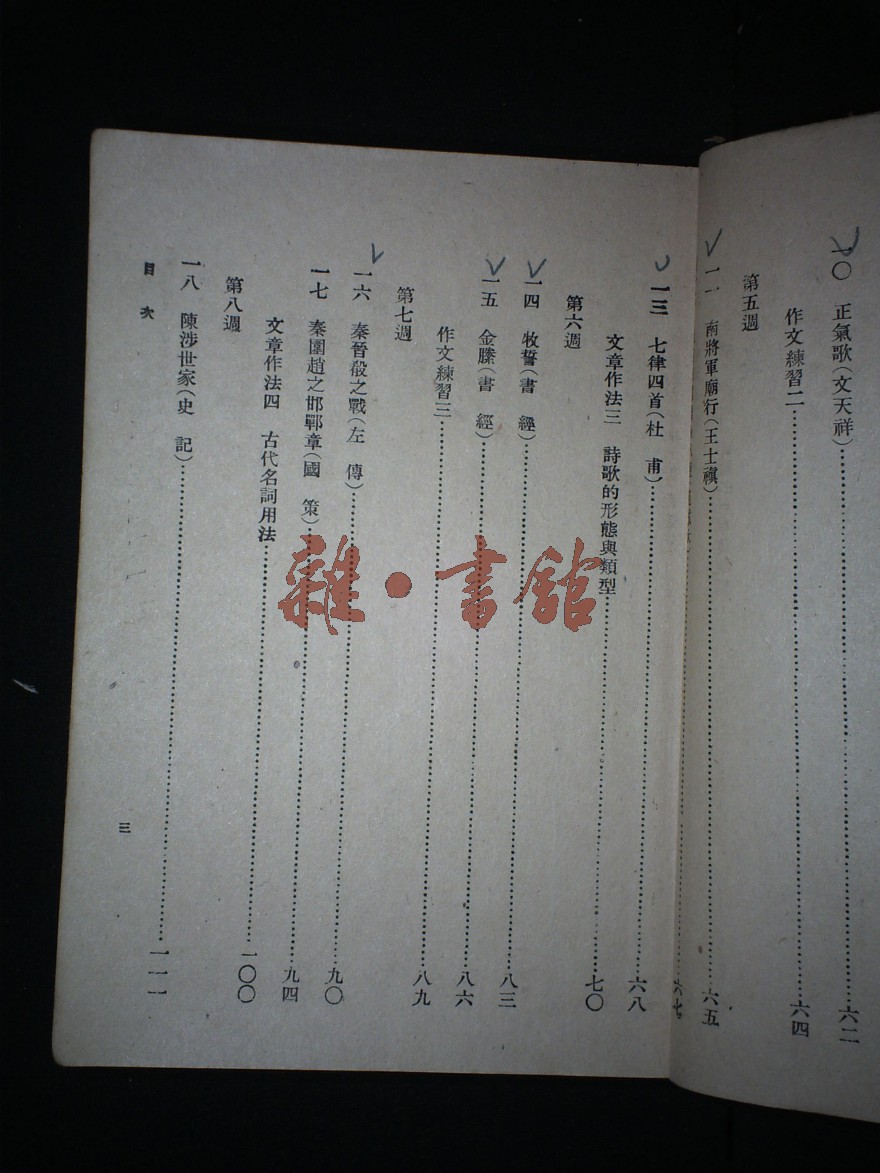 一〇 正氣歌(文天祥)……六二
作文練習二……六四
第五週
一一 南將軍廟行(王士禛)……六五
六七
一三 七律四首(杜 甫)……六八
文章作法三 詩歌的形態與類型……七〇
第六週
一四 牧誓(書 經)……八三
一五 金縢(書 經)……八六
作文練習三……八九
第七週
一六 秦晉殽之戰(左 傳)……九〇
一七 秦圍趙之邯鄲章(國 策)……九四
文章作法四 古代名詞用法……一〇〇
第八週
一八 陳涉世家(史 記)……一一一
目次
三
雜·書館